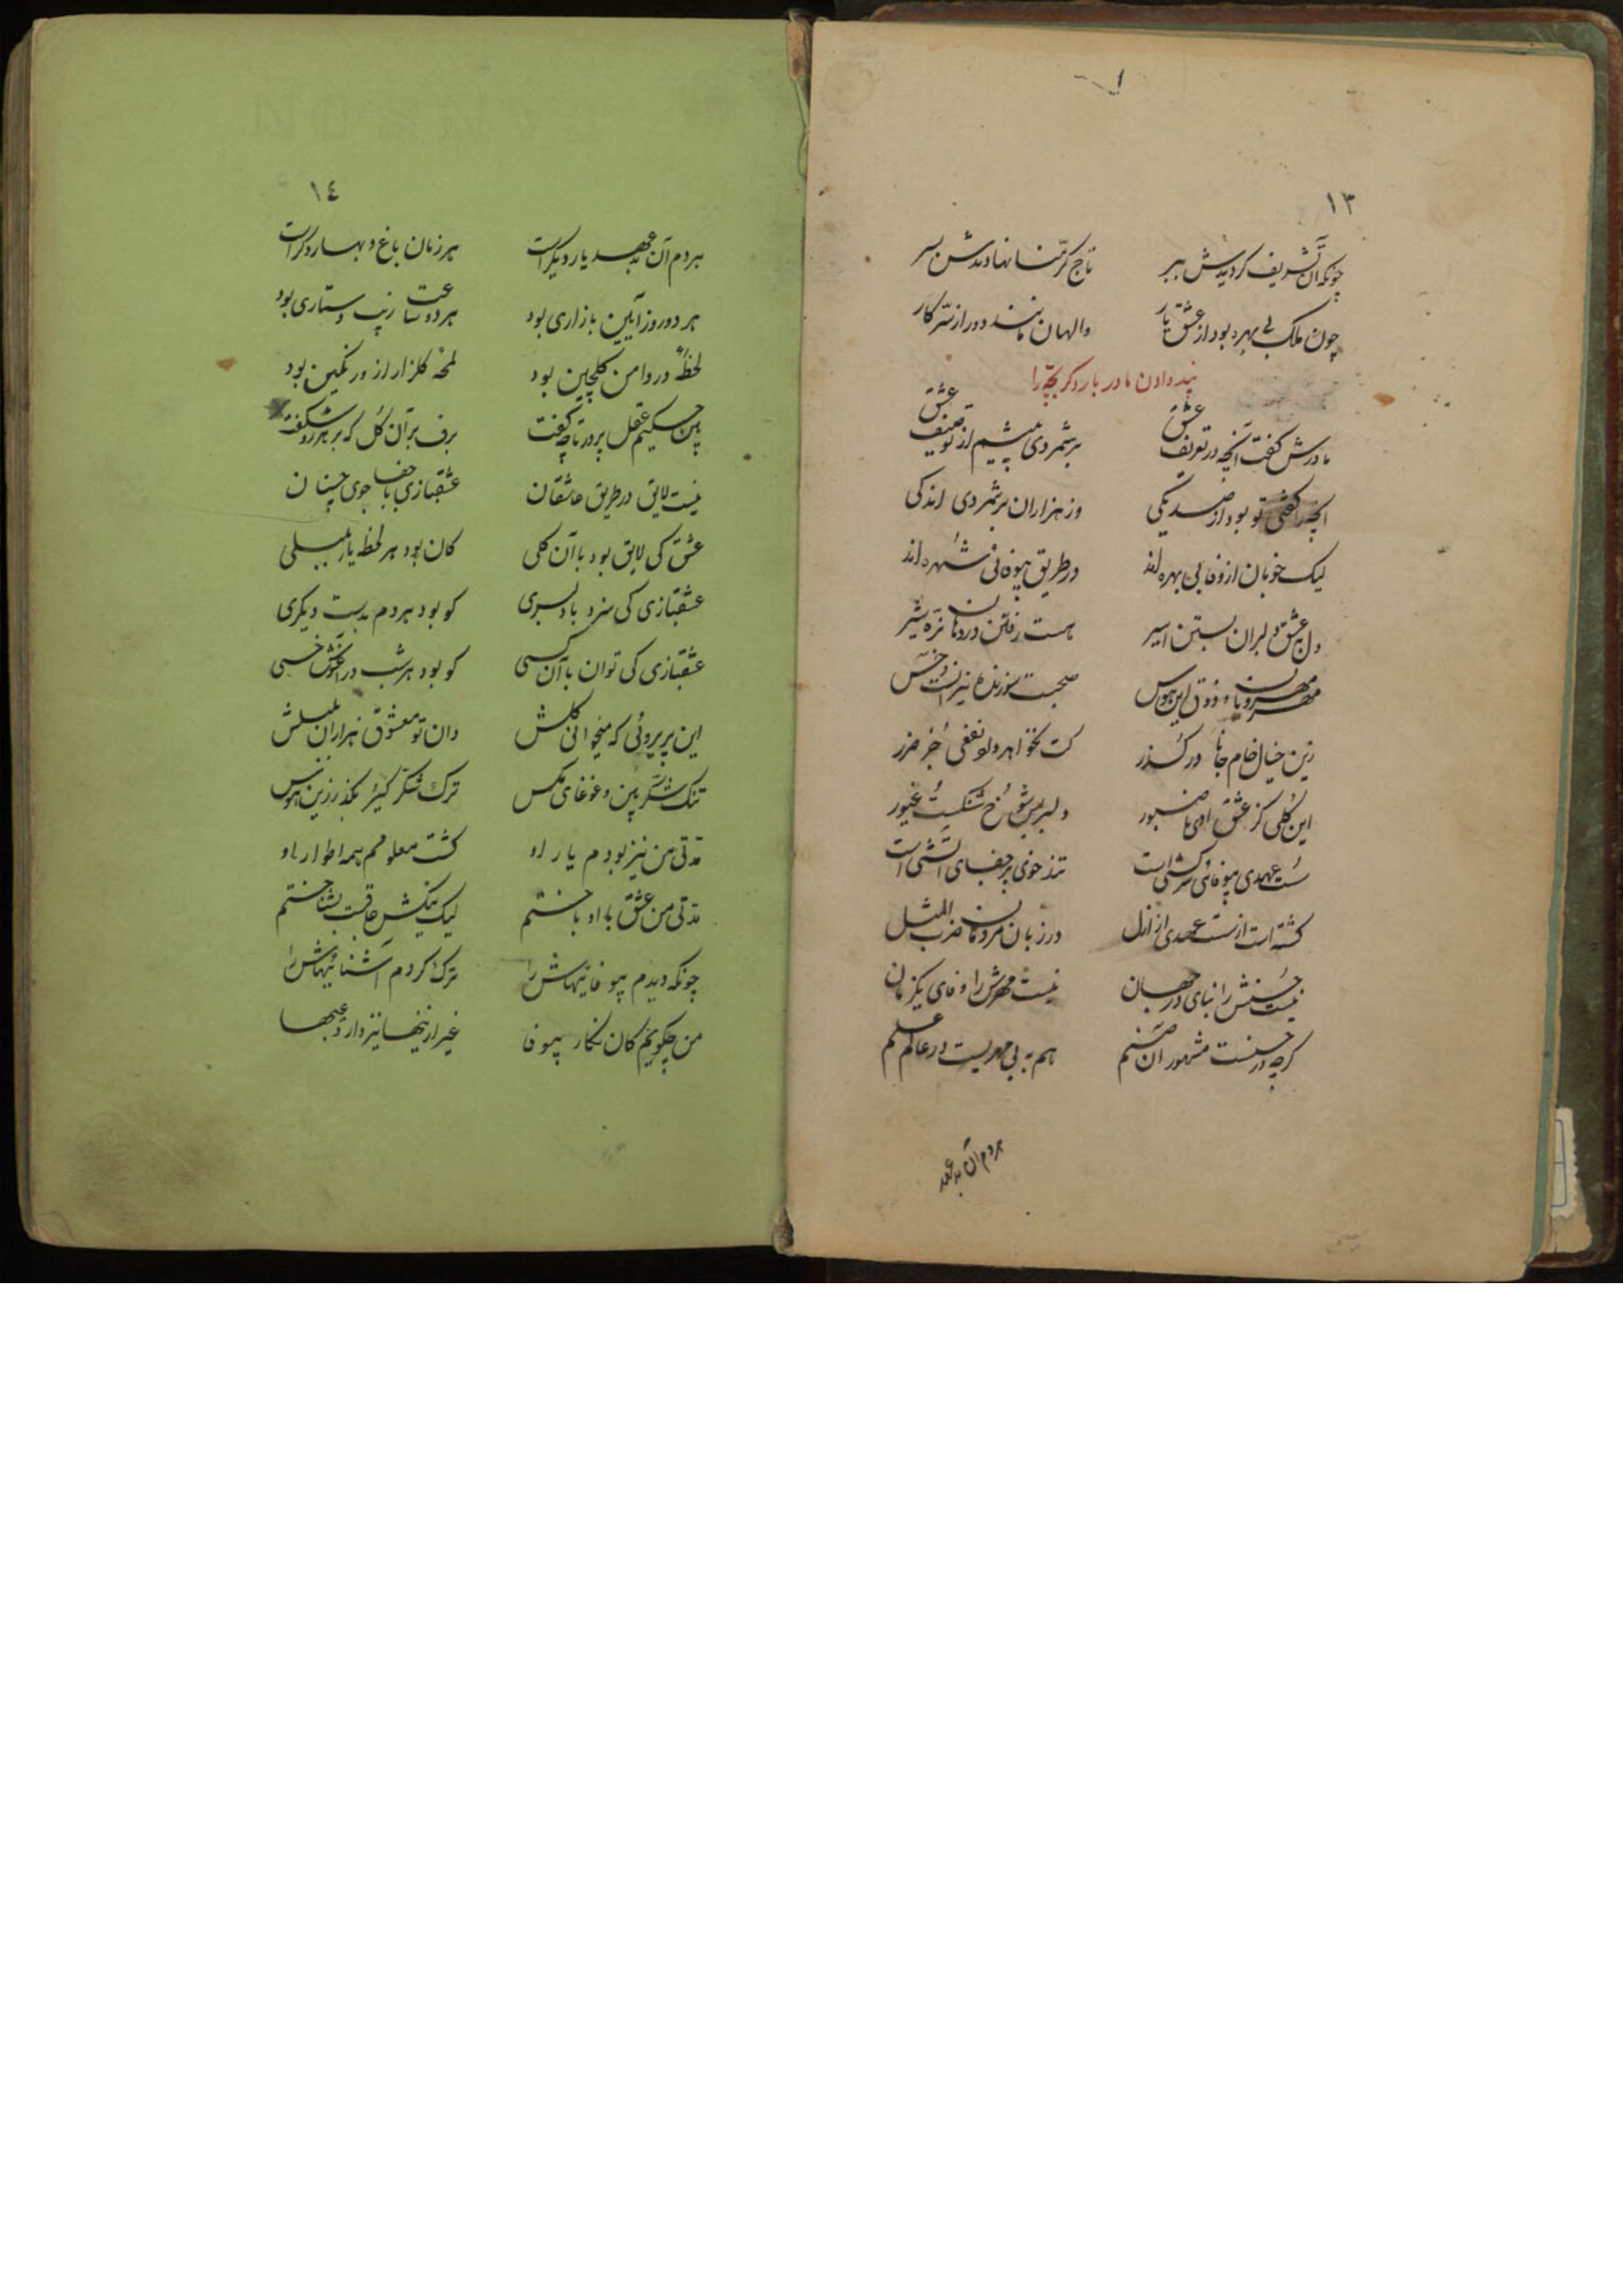 ١٣
چونکه آن تشریف کردیدش ببر تاج کرّمنا نهادندش بسر
چون ملک بی بهره بود از عشق یار والهان مانند دور از سرّ کار
پند دادن مادر بار دگر بچّه را
مادرش گفت آنچه در تعریف عشق برشمردی پیشم از توصیف عشق
آنچه را گفتی تو بود از صد یکی وز هزاران برشمردی اندکی
لیک خوبان از وفا بی بهره اند در طریق بیوفائی شهره اند
دل بعشق دلبران بستن اسیر هست رفتن در دهان نرّه شیر
مهر مهرویان و ذوق این هوس صحبت سوزنده نیرانست و خس
زین خیال خام جانا در گذر کت نخواهد داد نفعی جز ضرر
این گلی کز عشق اوئی ناصبور دلبری شوخست شنگیست غیور
سست عهدی بیوفائی سرکشی است تندخوئی پرجفای آتشی است
گشته است از سست عهدی از ازل در زبان مردمان ضرب المثل
نیست حُسنش را نبای در جهان نیست مهرش را وفای یکزمان
کرچه در حسنست مشهور آن صنم هم به بی مهریست در عالم علم
هر دم آن بد عهد
١٤
هر دم آن بد عهد یار دیگر است هر زمان باغ و بهار دگر است
هر دو روز آیین بازاری بود هر دو ساعت زیب دستاری بود
لحظهٔ در دامن گلچین بود لمحهٔ گلزار از او رنگین بود
این حکیم عقل پرور تا چه گفت برف بر آن گل که بر هر رو شکفت
نیست لایق در طریق عاشقان عشقبازی با جفا جوی چنان
عشق کی لایق بود با آن گلی کان بود هر لحظه یار بلبلی
عشقبازی کی سزد با دلبری کو بود هر دم بدست دیگری
عشقبازی کی توان با آن کسی کو بود هر شب در آغوش خسی
این پریروئی که میخوانی گلش دان تو معشوق هزاران بلبلش
تنک شکّر بین و غوغای مکس ترک شکّر گیر بگذر زین هوس
مدّتی من نیز بودم یار او گشت معلومم همه اطوار او
مدّتی من عشق با او باختم لیک نیکش عاقبت بشناختم
چونکه دیدم بیوفائیهاش را ترک کردم آشنائیهاش را
من چگویم کان نگار بیوفا غیر ازینها نیز دارد عیبها